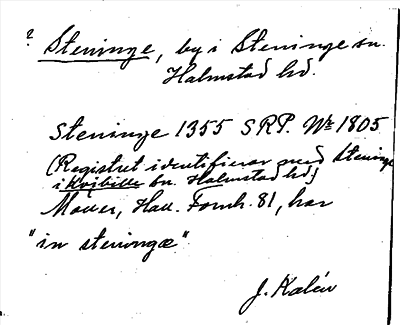 ? Steninge, by i Steninge sn.
Halmstad hd.
Steninge 1355 SRP. Nr 1805
(Registret identifierar med Steninge
i Kvibille sn. Halmstad hd.)
Hall. Fornh. 81, har
"in steningæ"
J. Kalén